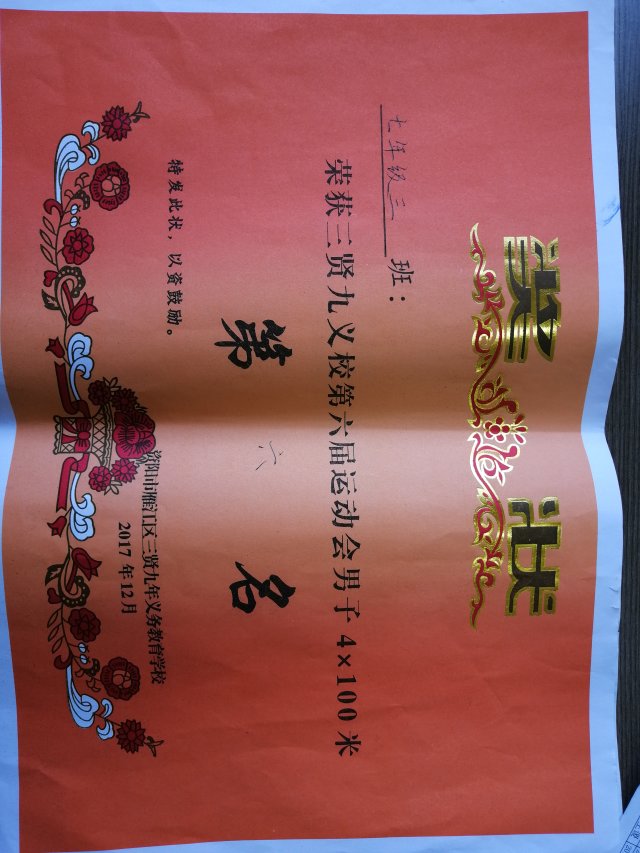 奖状
七年级三班：
荣获三贤九义校第六届运动会男子4×100米
第六名
特发此状，以资鼓励。
资阳市雁江区三贤九年义务教育学校
2017年12月